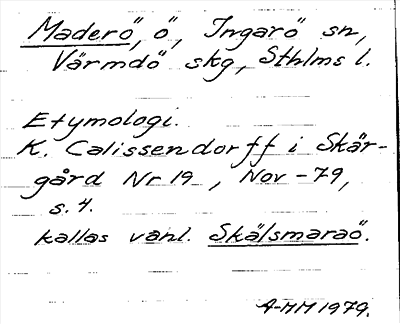 Maderö, ö, Ingarö sn,
Värmdö skg, Sthlms l.
Etymologi.
K. Calissendorff i Skär-
gård Nr 19, Nov -79,
s. 4.
kallas vanl. Skälsmaraö.
A-MM 1979.